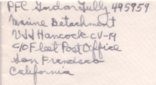 PFC Gordon Tully 495959
Marine Detachment
USS Hancock CV-19
c/o Fleet Post Office
San Francisco
California